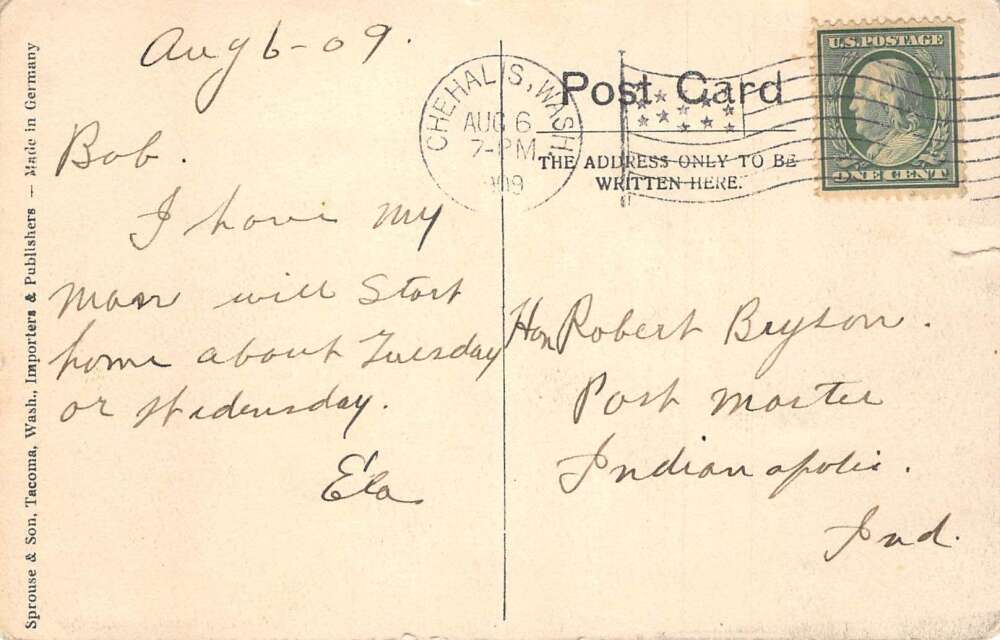 Aug 6-09.
Bob.
I have my
man will start
home about Tuesday
or Wednesday.
Ela
Post Card
THE ADDRESS ONLY TO BE
WRITTEN HERE.
CHEHALIS, WASH.
AUG 6
7-PM
1909
U.S. POSTAGE
ONE CENT
Hon Robert Bryson.
Post Master
Indianapolis.
Ind.
Sprouse & Son, Tacoma, Wash., Importers & Publishers — Made in Germany